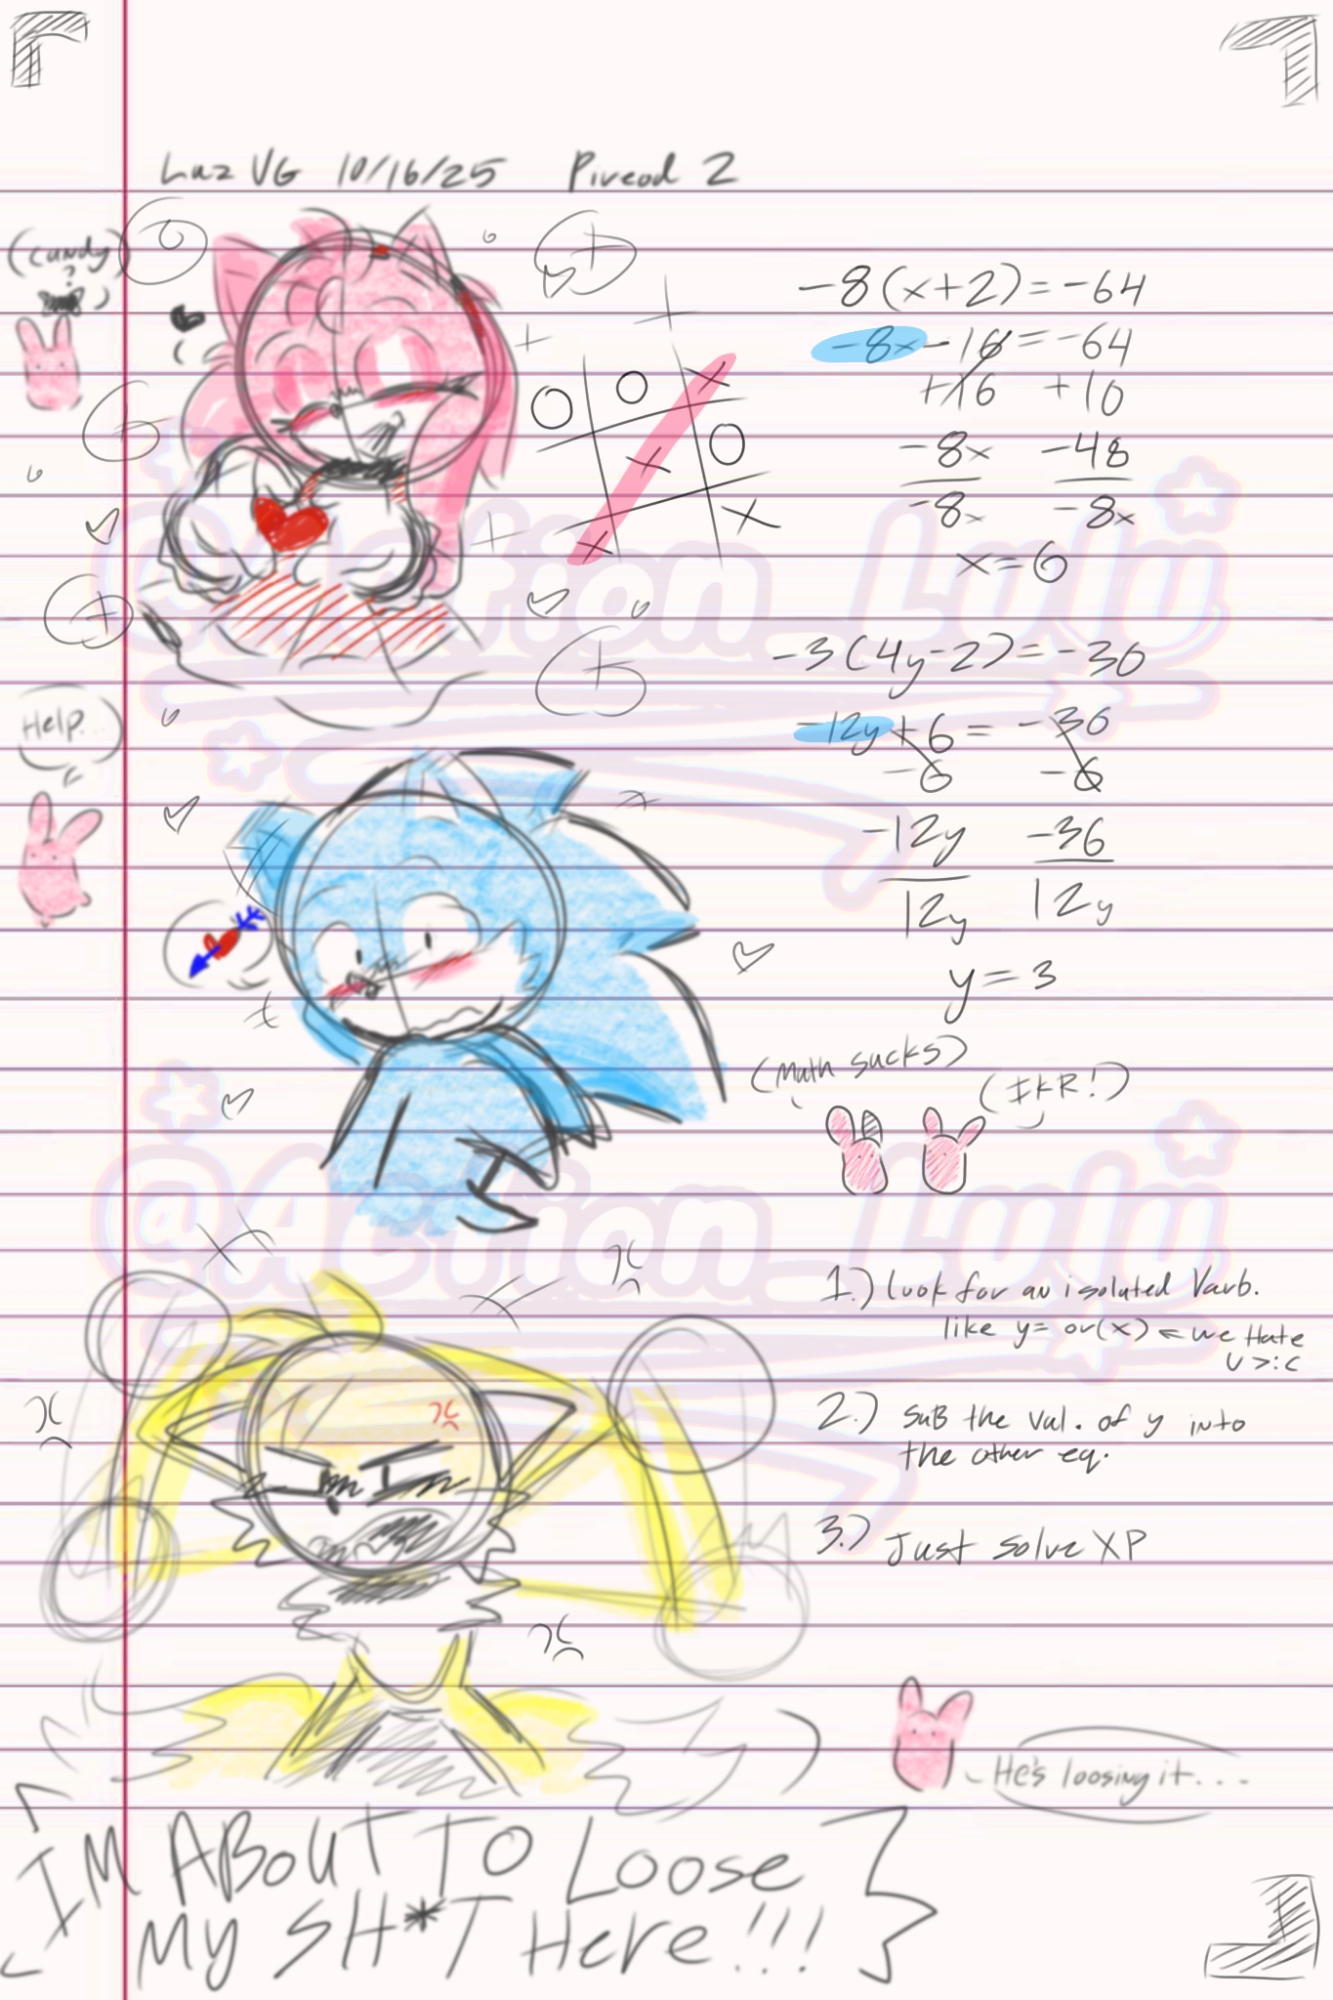 Luz VG 10/16/25 Pireod 2
(candy?)
-8(x+2)=-64
-8x-16=-64
+16 +10
-8x -48
-8x -8x
x=6
-3(4y-2)=-30
Help..
-12y+6=-30
-6 -6
-12y -36
12y 12y
y=3
(Math sucks)
(IKR!)
1.) Look for an isolated Varb.
like y= or(x) ← we Hate
U >:c
2.) SuB the Val. of y into
the other eq.
3.) Just solve XP
He's loosing it...
IM ABouT To Loose
My SH*T Here!!!
@Action_Lulu
@Action_Lulu